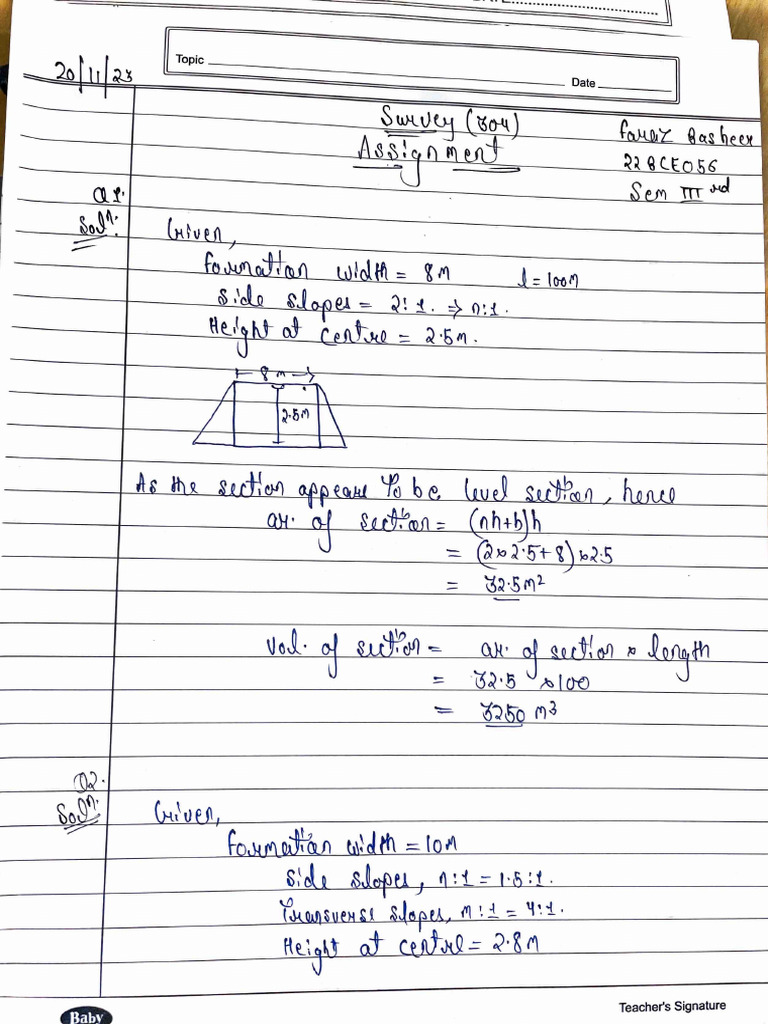 Topic
Date
20/11/23
Survey (304)
Assignment
Faraz Basheer
22BCE056
Sem IIIrd
Q1.
Solⁿ:
Given,
Formation width = 8m l = 100m
Side slopes = 2:1. => n:1.
Height at centre = 2.5m.
8m
2.5m
As the section appears to be level section, hence
ar. of section = (nh+b)h
= (2×2.5+8)×2.5
= 32.5m²
Vol. of section = ar. of section × length
= 32.5 ×100
= 3250 m³
Q2.
Solⁿ:
Given,
Formation width = 10m
Side slopes, n:1 = 1.5:1.
Transverse slopes, m:1 = 4:1.
Height at centre = 2.8m
Baby
Teacher's Signature